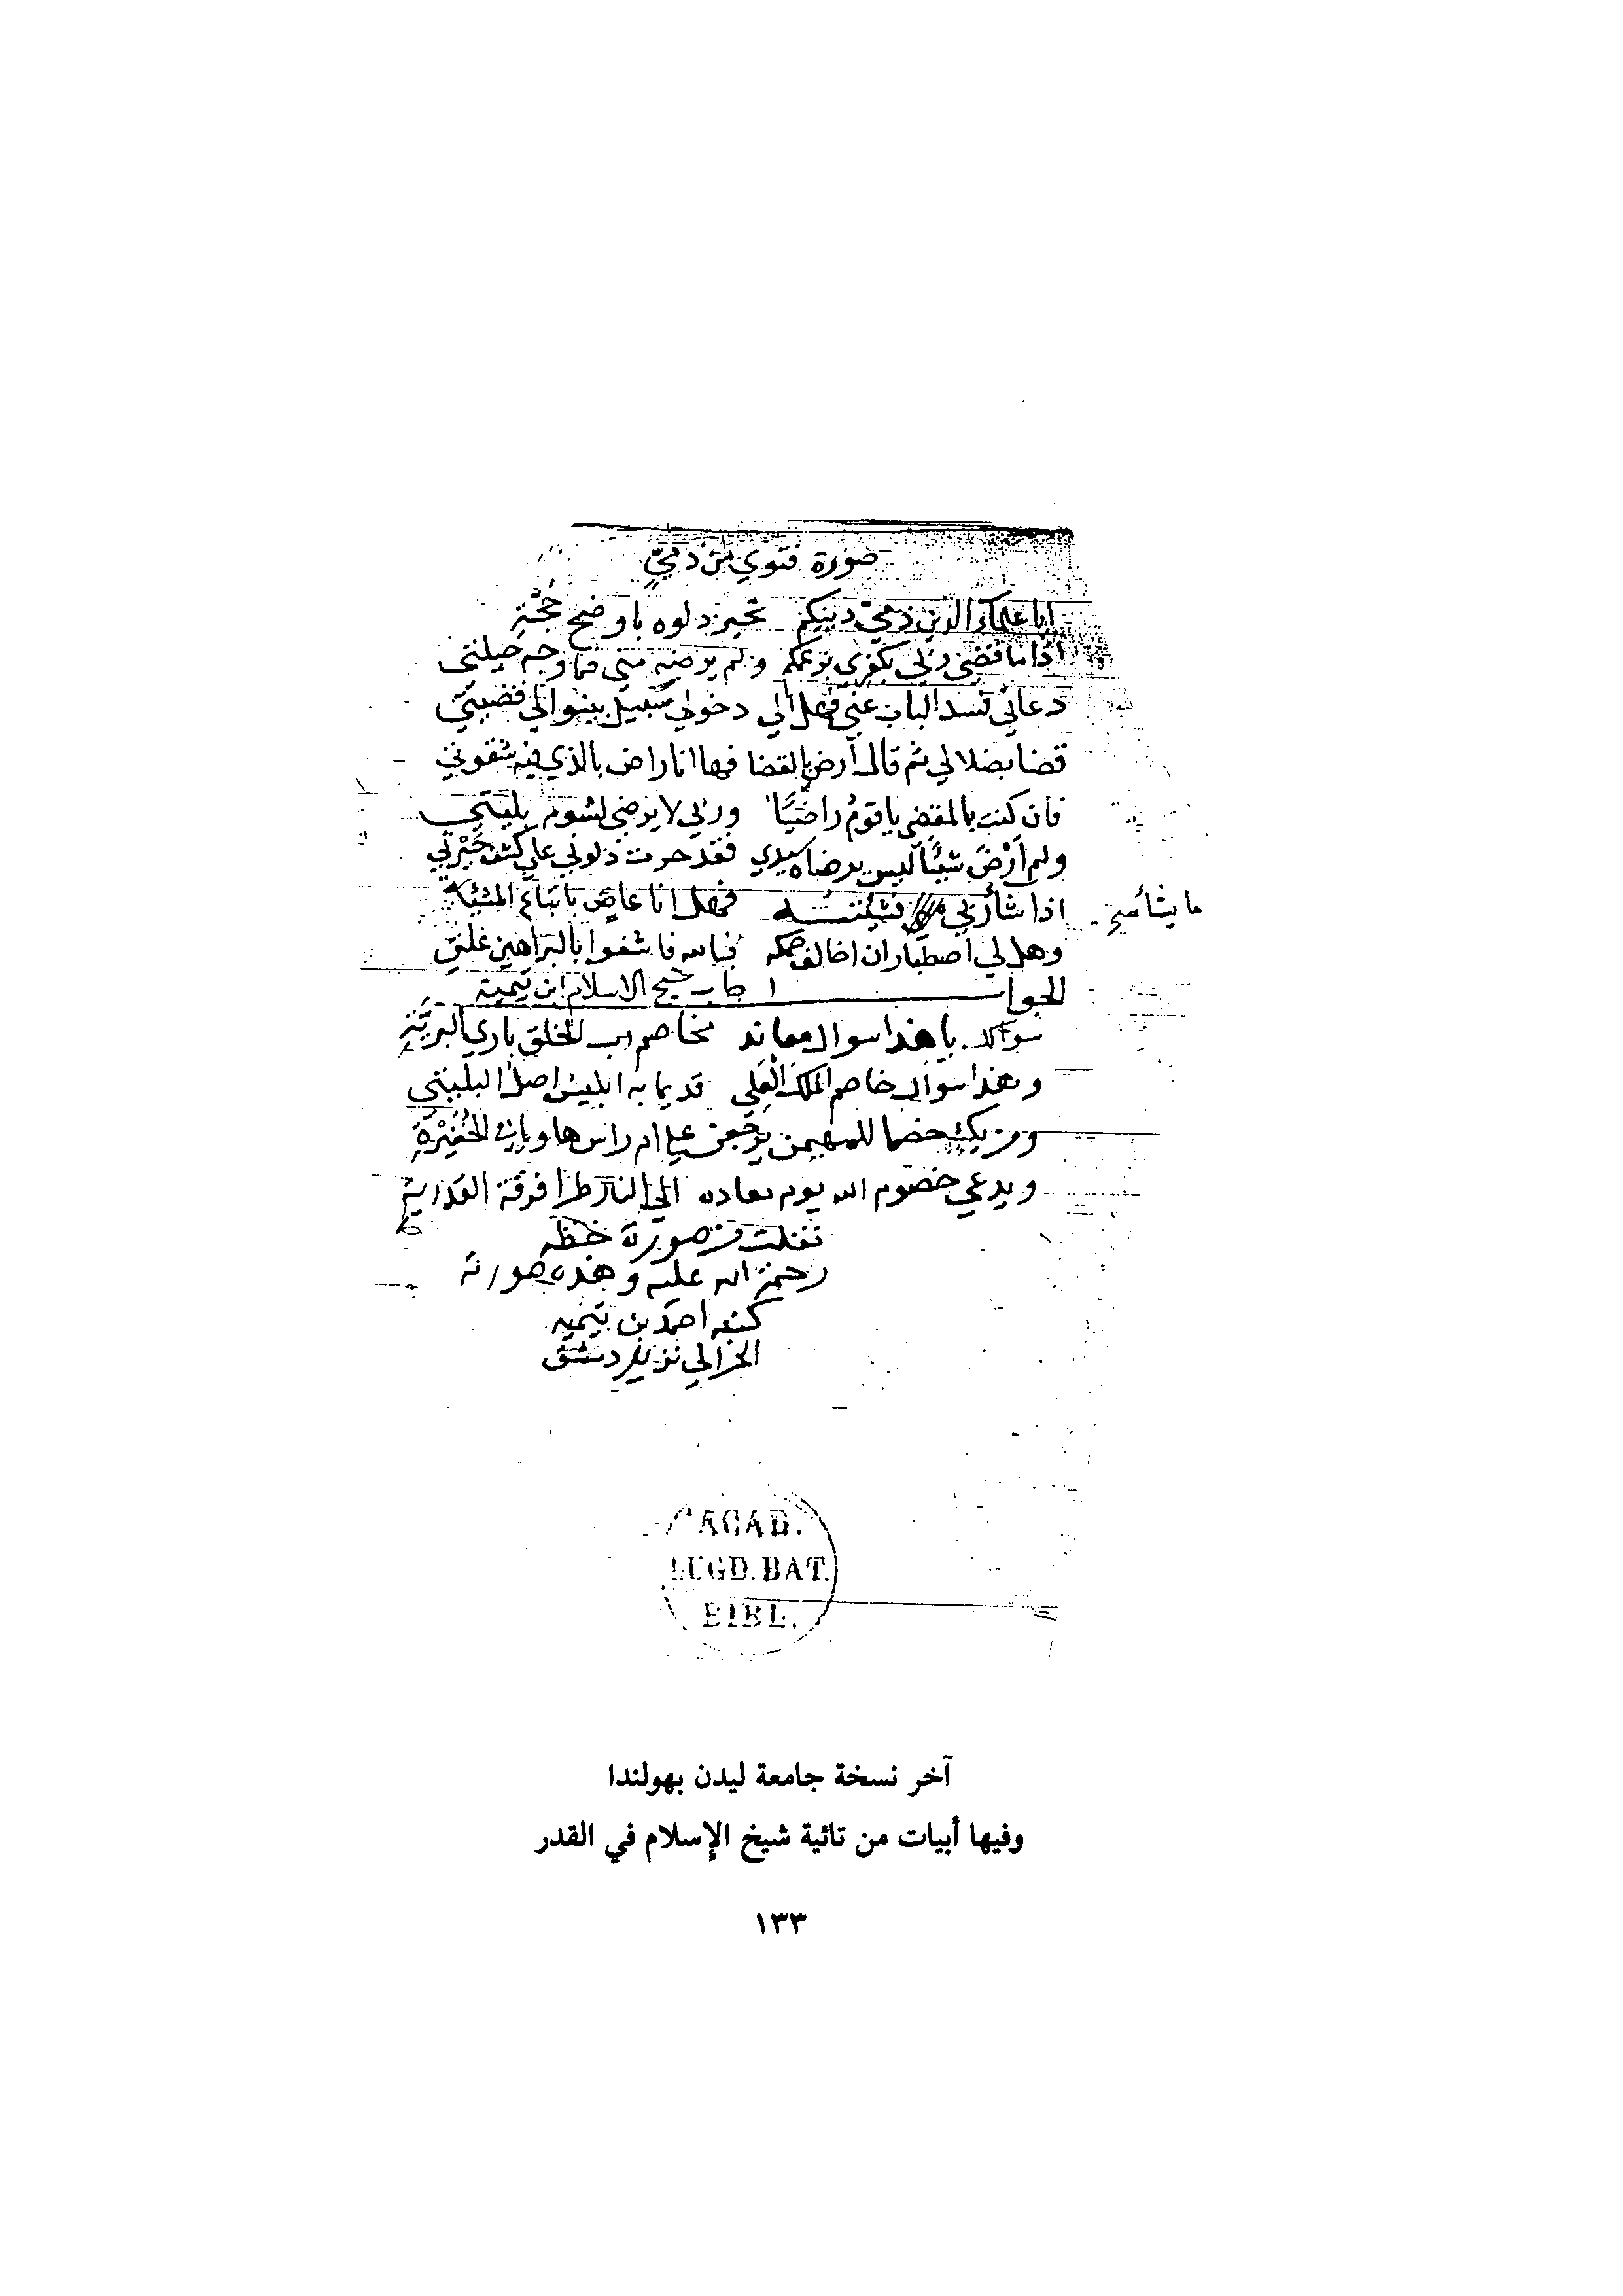 صورة فتوي من ذميٍّ
ايا علمآء الدين ذمي دينكم تحير دلوه باوضح حُجَّةِ
اذا ما قضي ربي بكفري بزعمكم ولم يرضه مني فما وجه حيلتي
دعاني فسد الباب عني فهل الي دخولي سبيل بينوا لي قضيتي
قضا بضلالي ثم قال ارض بالقضا فها انا راض بالذي فيه شقوتي
فان كنت بالمقضي يا قوم راضيًا وربي لا يرضي لشوم بليتي
ولم ارْضَ شيئًا ليس يرضاه سيدي فقد حرت دلوني علي كشف حَيْرتي
اذا شا ربي مشيئته فهل انا عاصٍ باتباع المشيئة
ما يشا صح
وهل لي اصطبار ان اخالف حكمه فبالله فاشفوا بالبراهين غلتي
الجواب اجاب شيخ الاسلام ابن تيمية
سوالك يا هذا سوال معاند مخاصم رب الخلق باري البريَّةِ
وهذا سوال خاصم الملك العلي قديما به ابليس اصل البليتي
ومن يك خصما للمهيمن يرجعن علي ام راس هاويا في الحُفَيْرَةِ
ويدعي خصوم الله يوم معاده الي النار طرا فرقة القدرية
نقلت من صورة خطه
رحمة الله عليه وهذه صورته
كتبه احمد بن تيميه
الحراني نزيل دمشق
ACAD.
LUGD. BAT.
BIBL.
آخر نسخة جامعة ليدن بهولندا
وفيها أبيات من تائية شيخ الإسلام في القدر
١٣٣